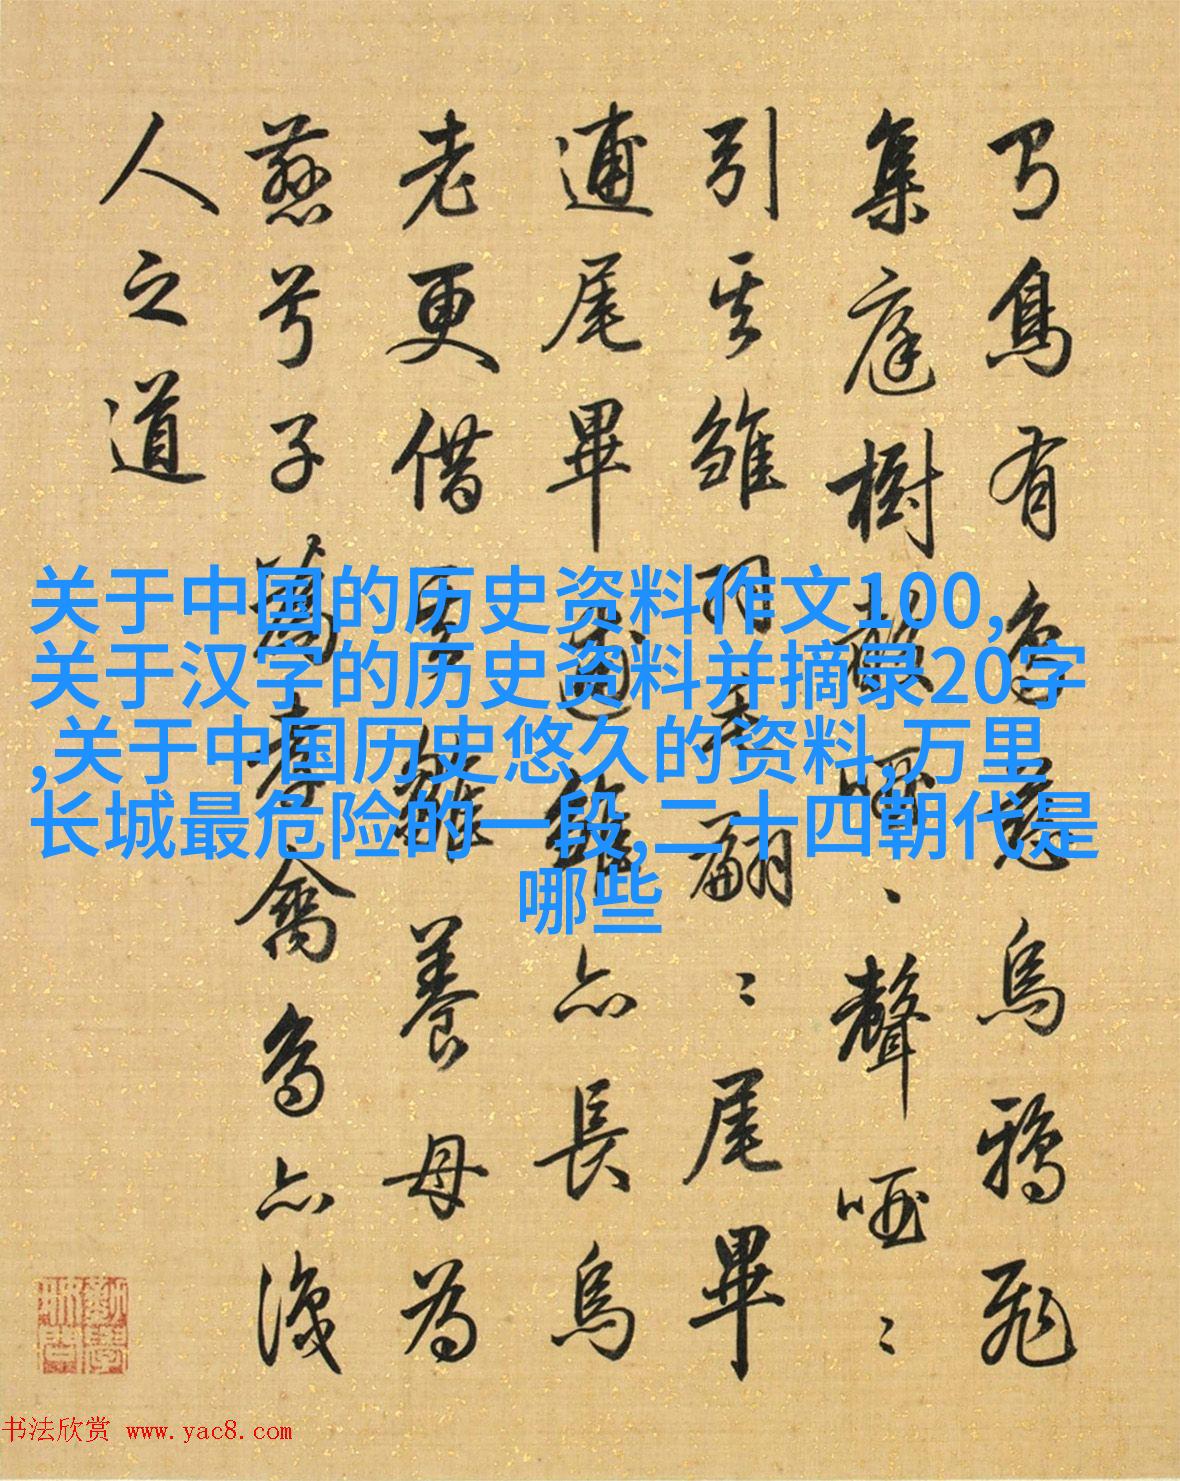 鳥有名慈烏鴉飛
集庭樹噪、聲啞ミ
引其雛羽翩ミ尾畢
逋尾畢逋雛亦長烏
老更借雛養母為
慈兮子孝禽鳥亦識
人之道
关于中国的历史资料作文100,
关于汉字的历史资料并摘录20字
,关于中国历史悠久的资料,万里
长城最危险的一段,二十四朝代是
哪些
书法欣赏 www.yac8.com